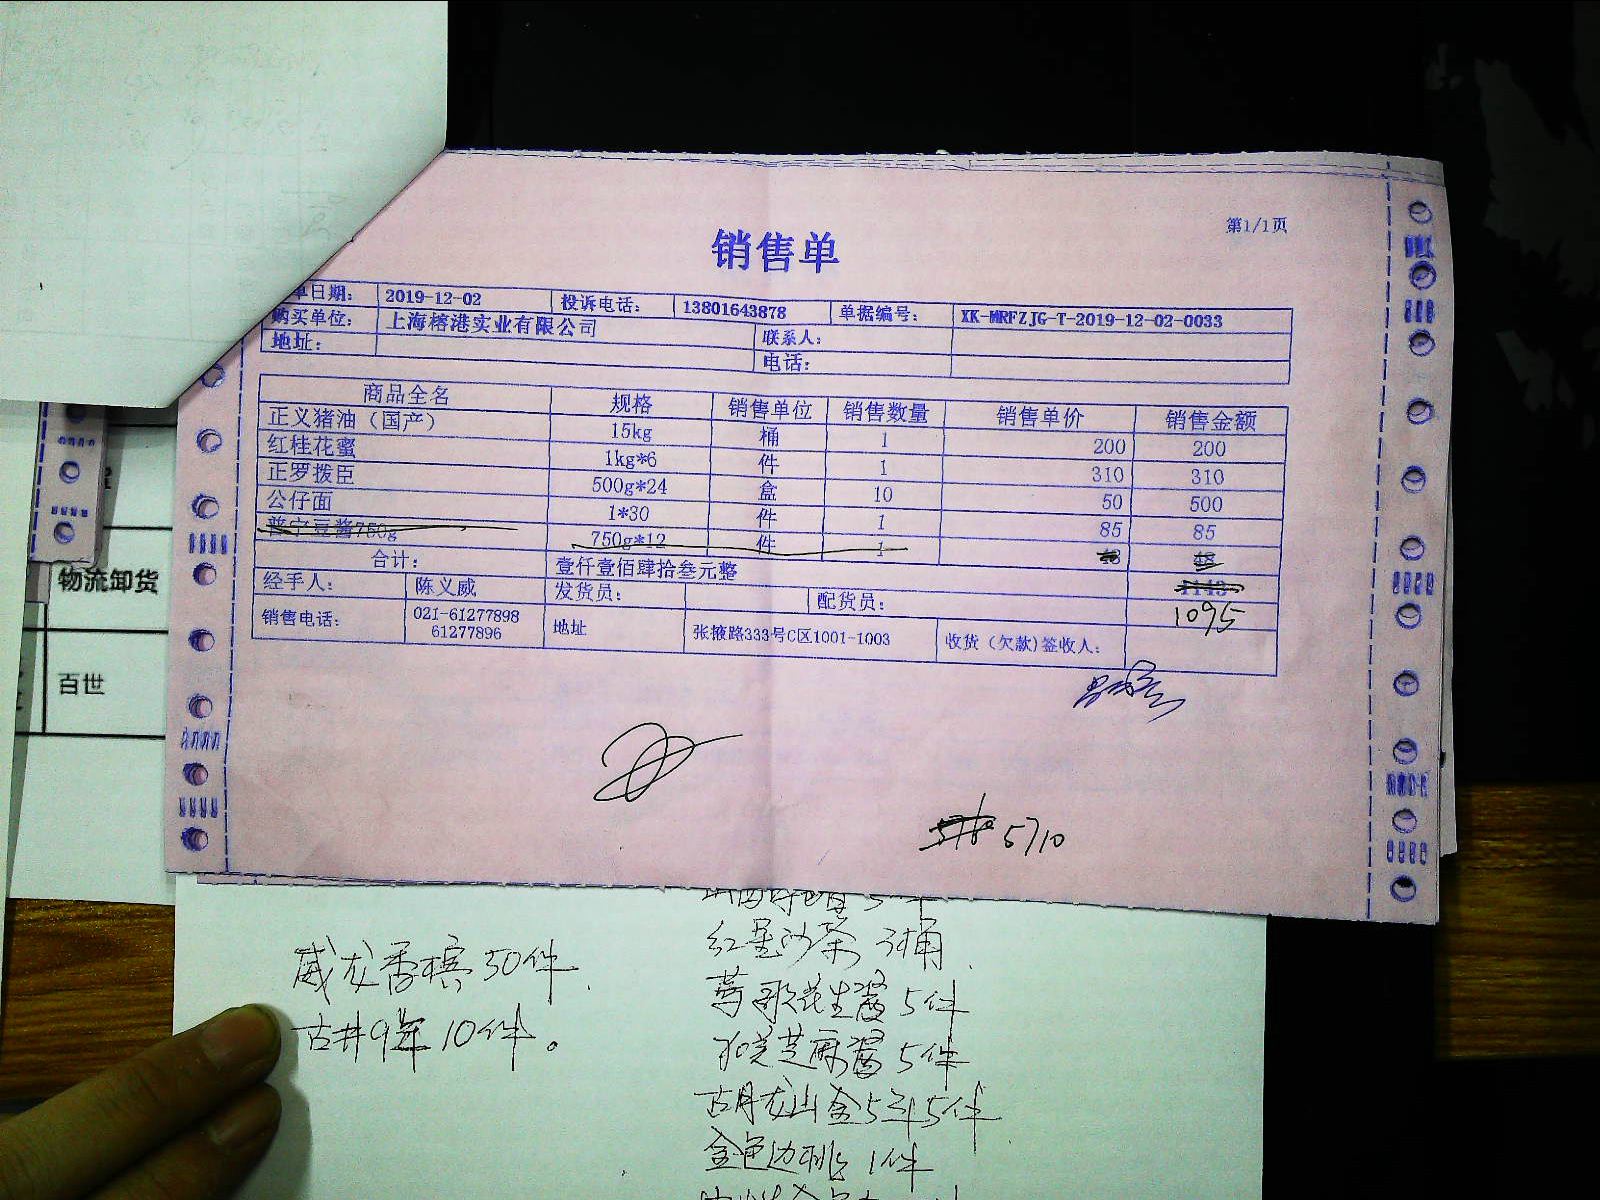 第1/1页
销售单
单日期： 2019-12-02 投诉电话： 13801643878 单据编号： XK-MRFZJG-T-2019-12-02-0033
购买单位： 上海榕港实业有限公司 联系人：
地址： 电话：
商品全名 规格 销售单位 销售数量 销售单价 销售金额
正义猪油（国产） 15kg 桶 1 200 200
红桂花蜜 1kg*6 件 1 310 310
正罗拨臣 500g*24 盒 10 50 500
公仔面 1*30 件 1 85 85
普宁豆酱750g 750g*12 件 1
合计： 壹仟壹佰肆拾叁元整 1143
1095
经手人： 陈义威 发货员： 配货员：
销售电话： 021-61277898 61277896 地址 张掖路333号C区1001-1003 收货（欠款)签收人：
5710
物流卸货
百世
威龙香槟 50件
古井9年 10件。
红星沙茶 3桶
莺歌花生酱 5件
芝麻酱 5件
古月龙山金5年5件
金色边桃 1件